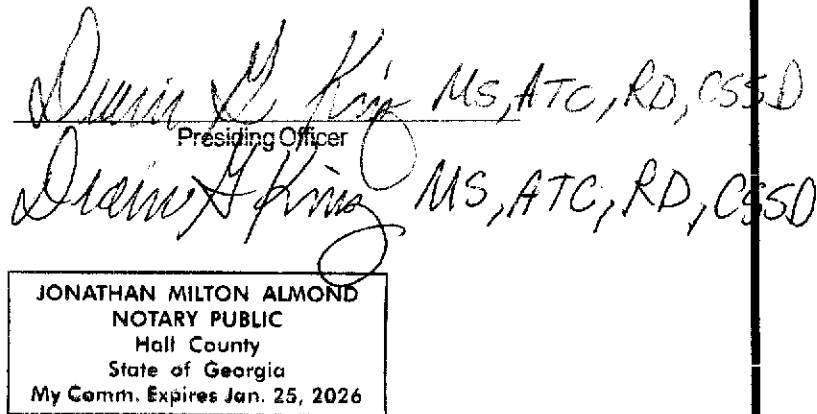 King MS, ATC, RD, CSSD
Presiding Officer
King MS, ATC, RD, CSSD
JONATHAN MILTON ALMOND
NOTARY PUBLIC
Hall County
State of Georgia
My Comm. Expires Jan. 25, 2026